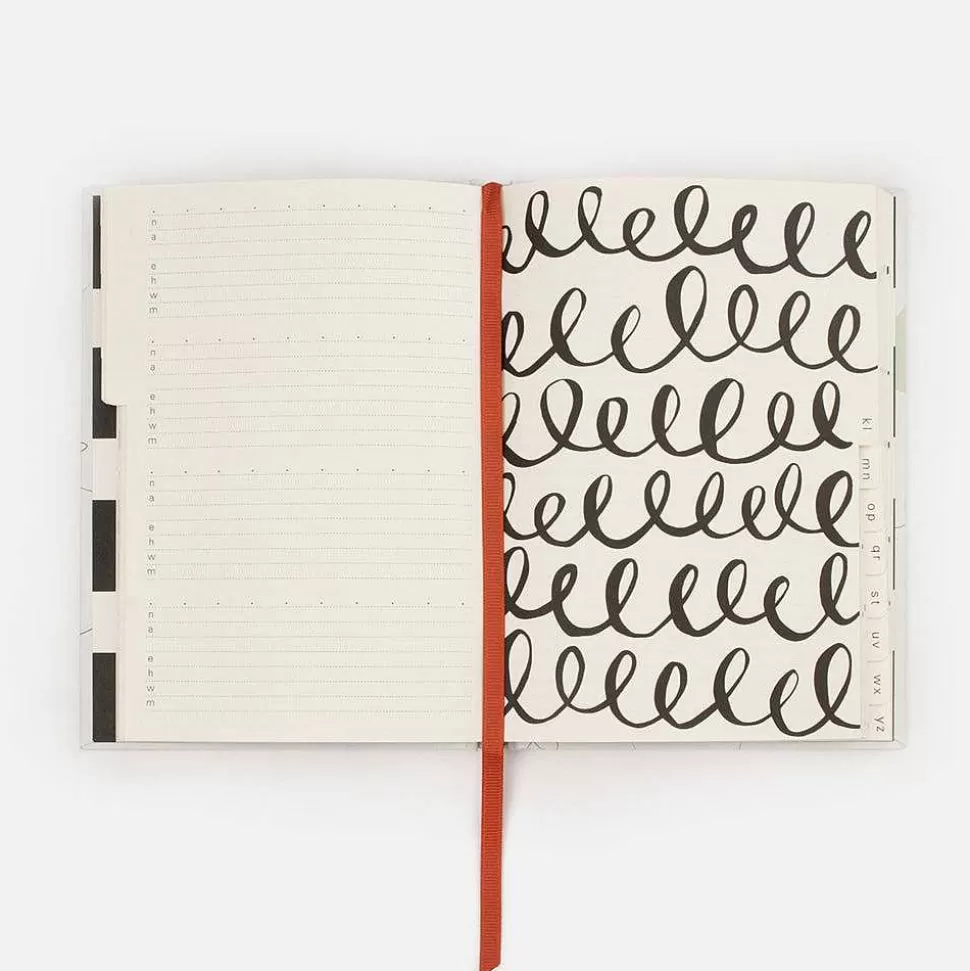 n
a
e
h
w
m
n
a
e
h
w
m
n
a
e
h
w
m
n
a
e
h
w
m
kl
mn
op
qr
st
uv
wx
yz